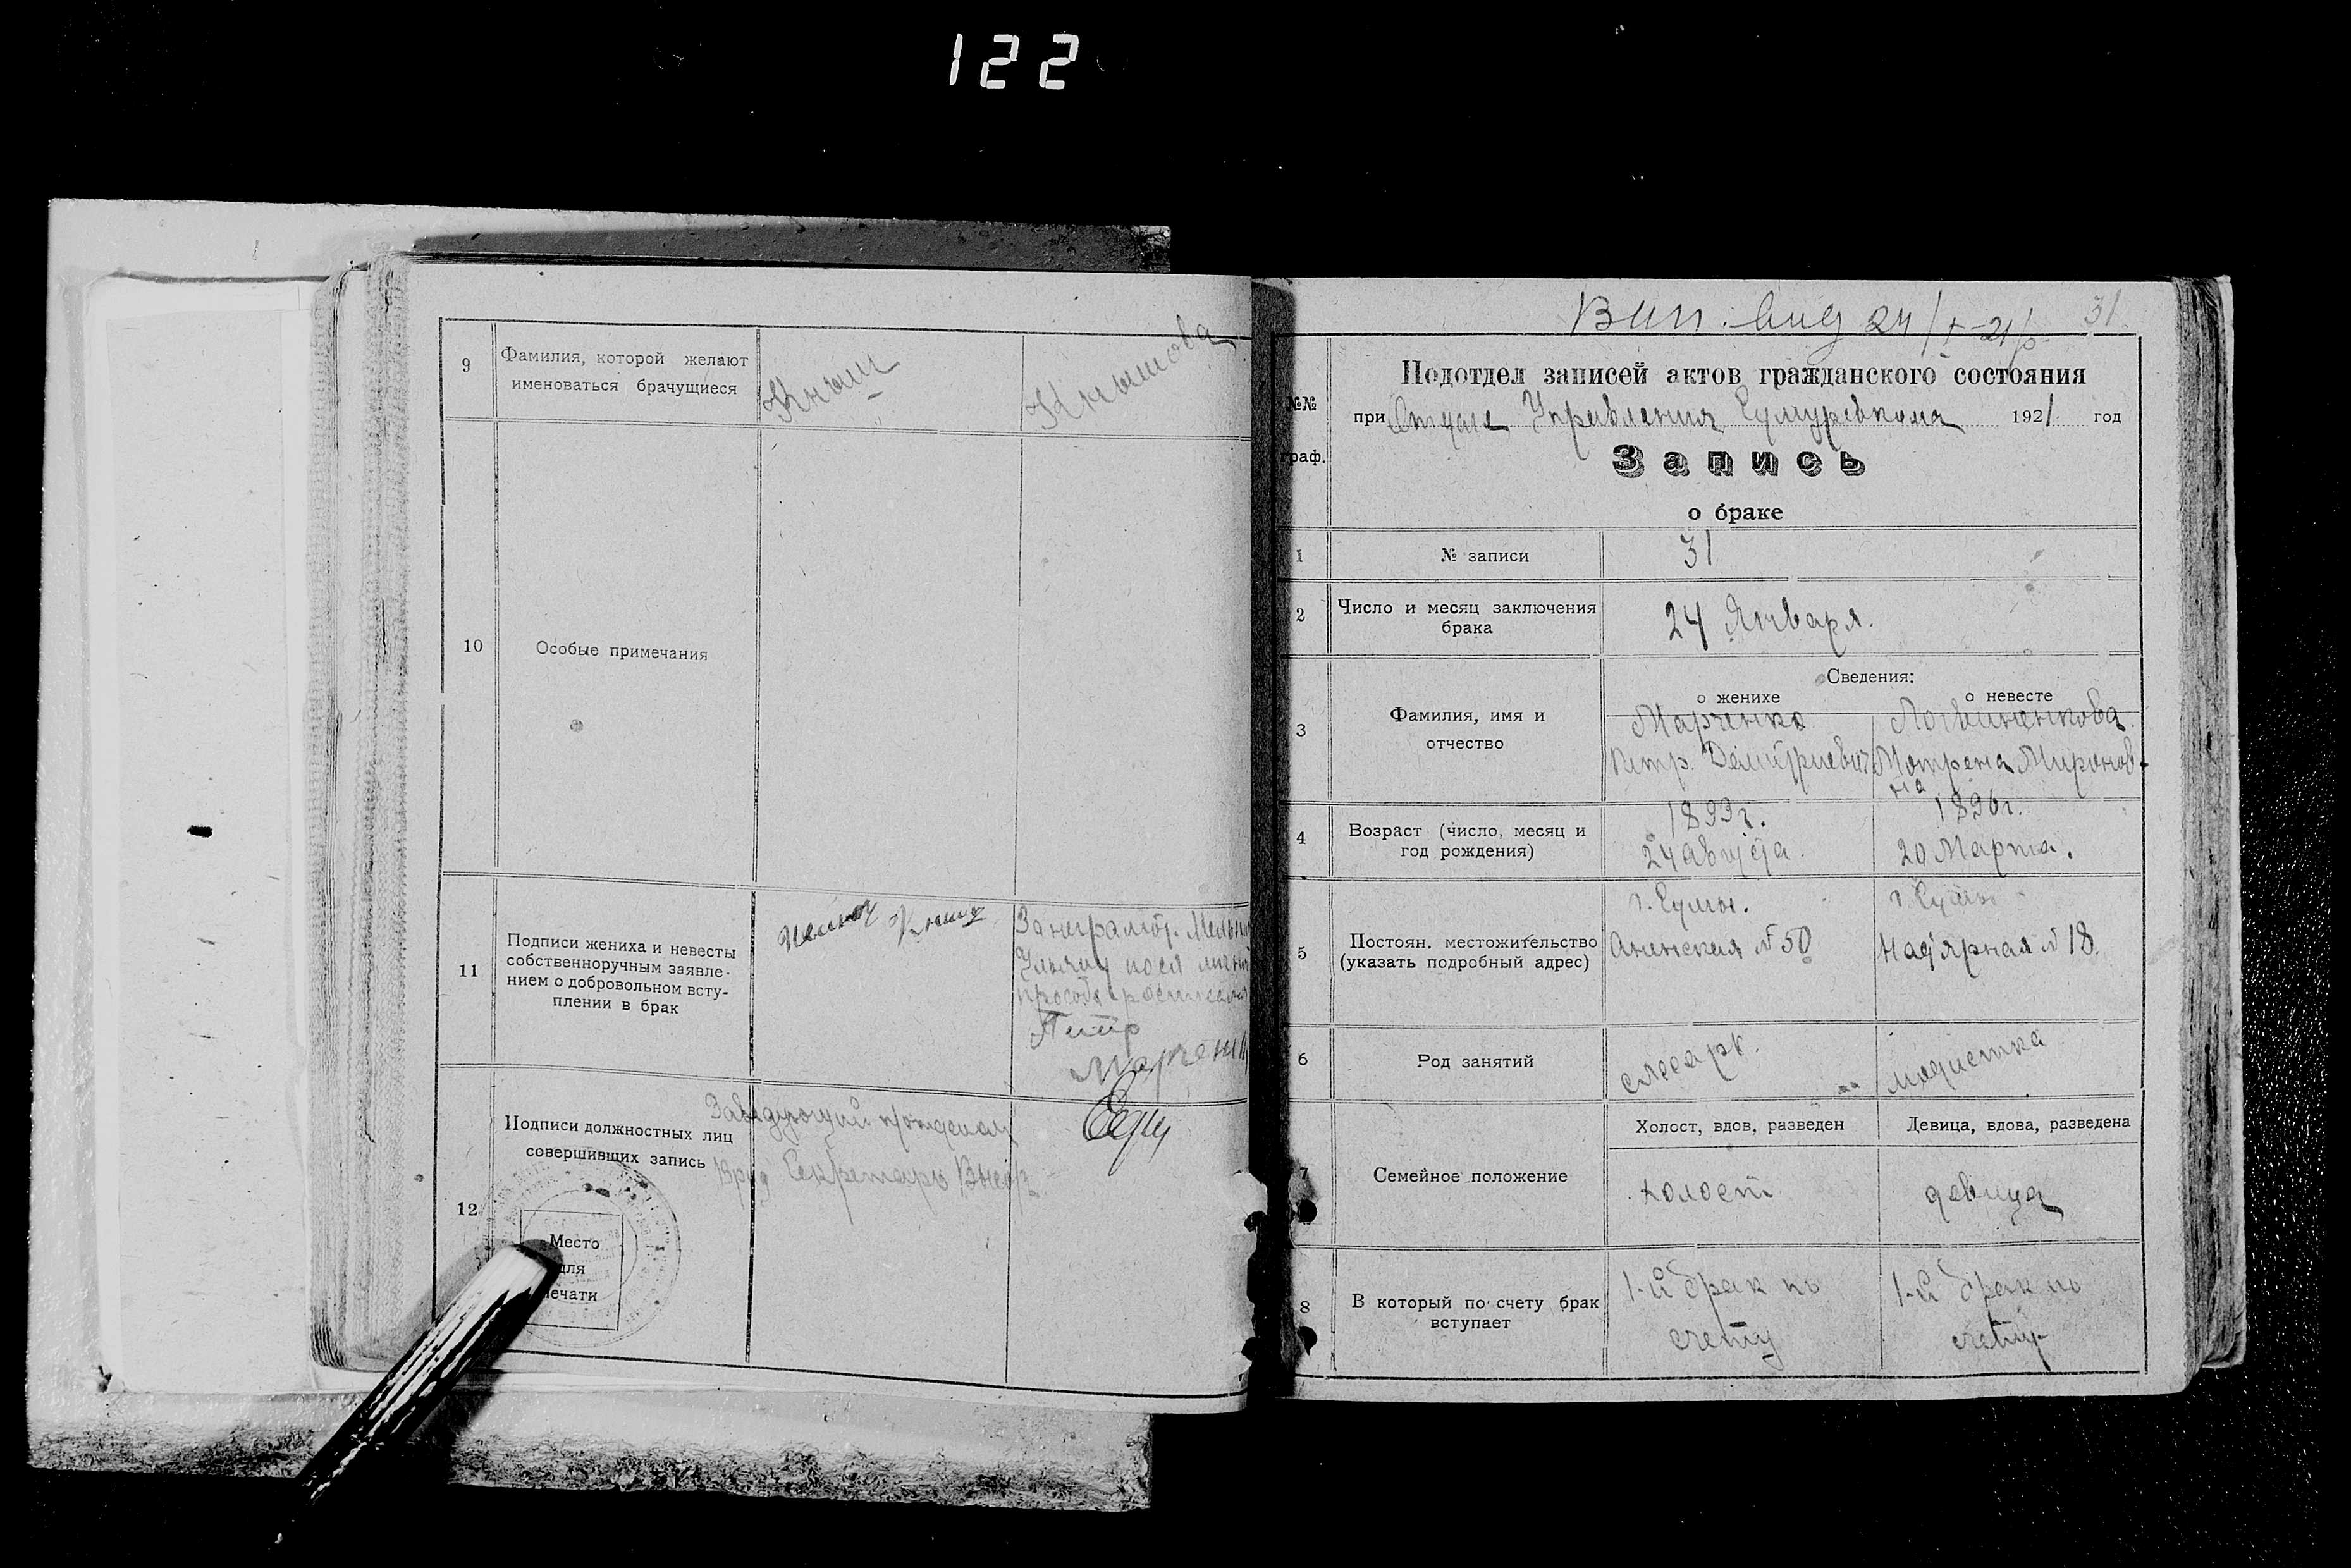 122
9
Фамилия, которой желают
именоваться брачущиеся
Кныш
Кнышова
10
Особые примечания
11
Подписи жениха и невесты
собственноручным заявле-
нием о добровольном всту-
плении в брак
Кныш
За неграмотн.
Петр
Марченко
12
Подписи должностных лиц
совершивших запись
Заведующий
Секретарь
Место
для
печати
24/I-21 р.
31
№№
граф.
Подотдел записей актов гражданского состояния
при Отделе Управления Сумуревкома 1921 год
Запись
о браке
1
№ записи
31
2
Число и месяц заключения
брака
24 Января.
3
Фамилия, имя и
отчество
Сведения:
о женихе
о невесте
Марченко
Петр. Демитриевич
Логвиненкова
Мотрена Миронов-
на
4
Возраст (число, месяц и
год рождения)
1893г.
24 августа.
1896г.
20 Марта.
5
Постоян. местожительство
(указать подробный адрес)
г. Сумы.
Аненская № 50
г. Сумы
Над'ярная № 18.
6
Род занятий
слесарь.
модистка
7
Семейное положение
Холост, вдов, разведен
Девица, вдова, разведена
холост
девица
8
В который по счету брак
вступает
1-й брак по
счету
1-й брак по
счету